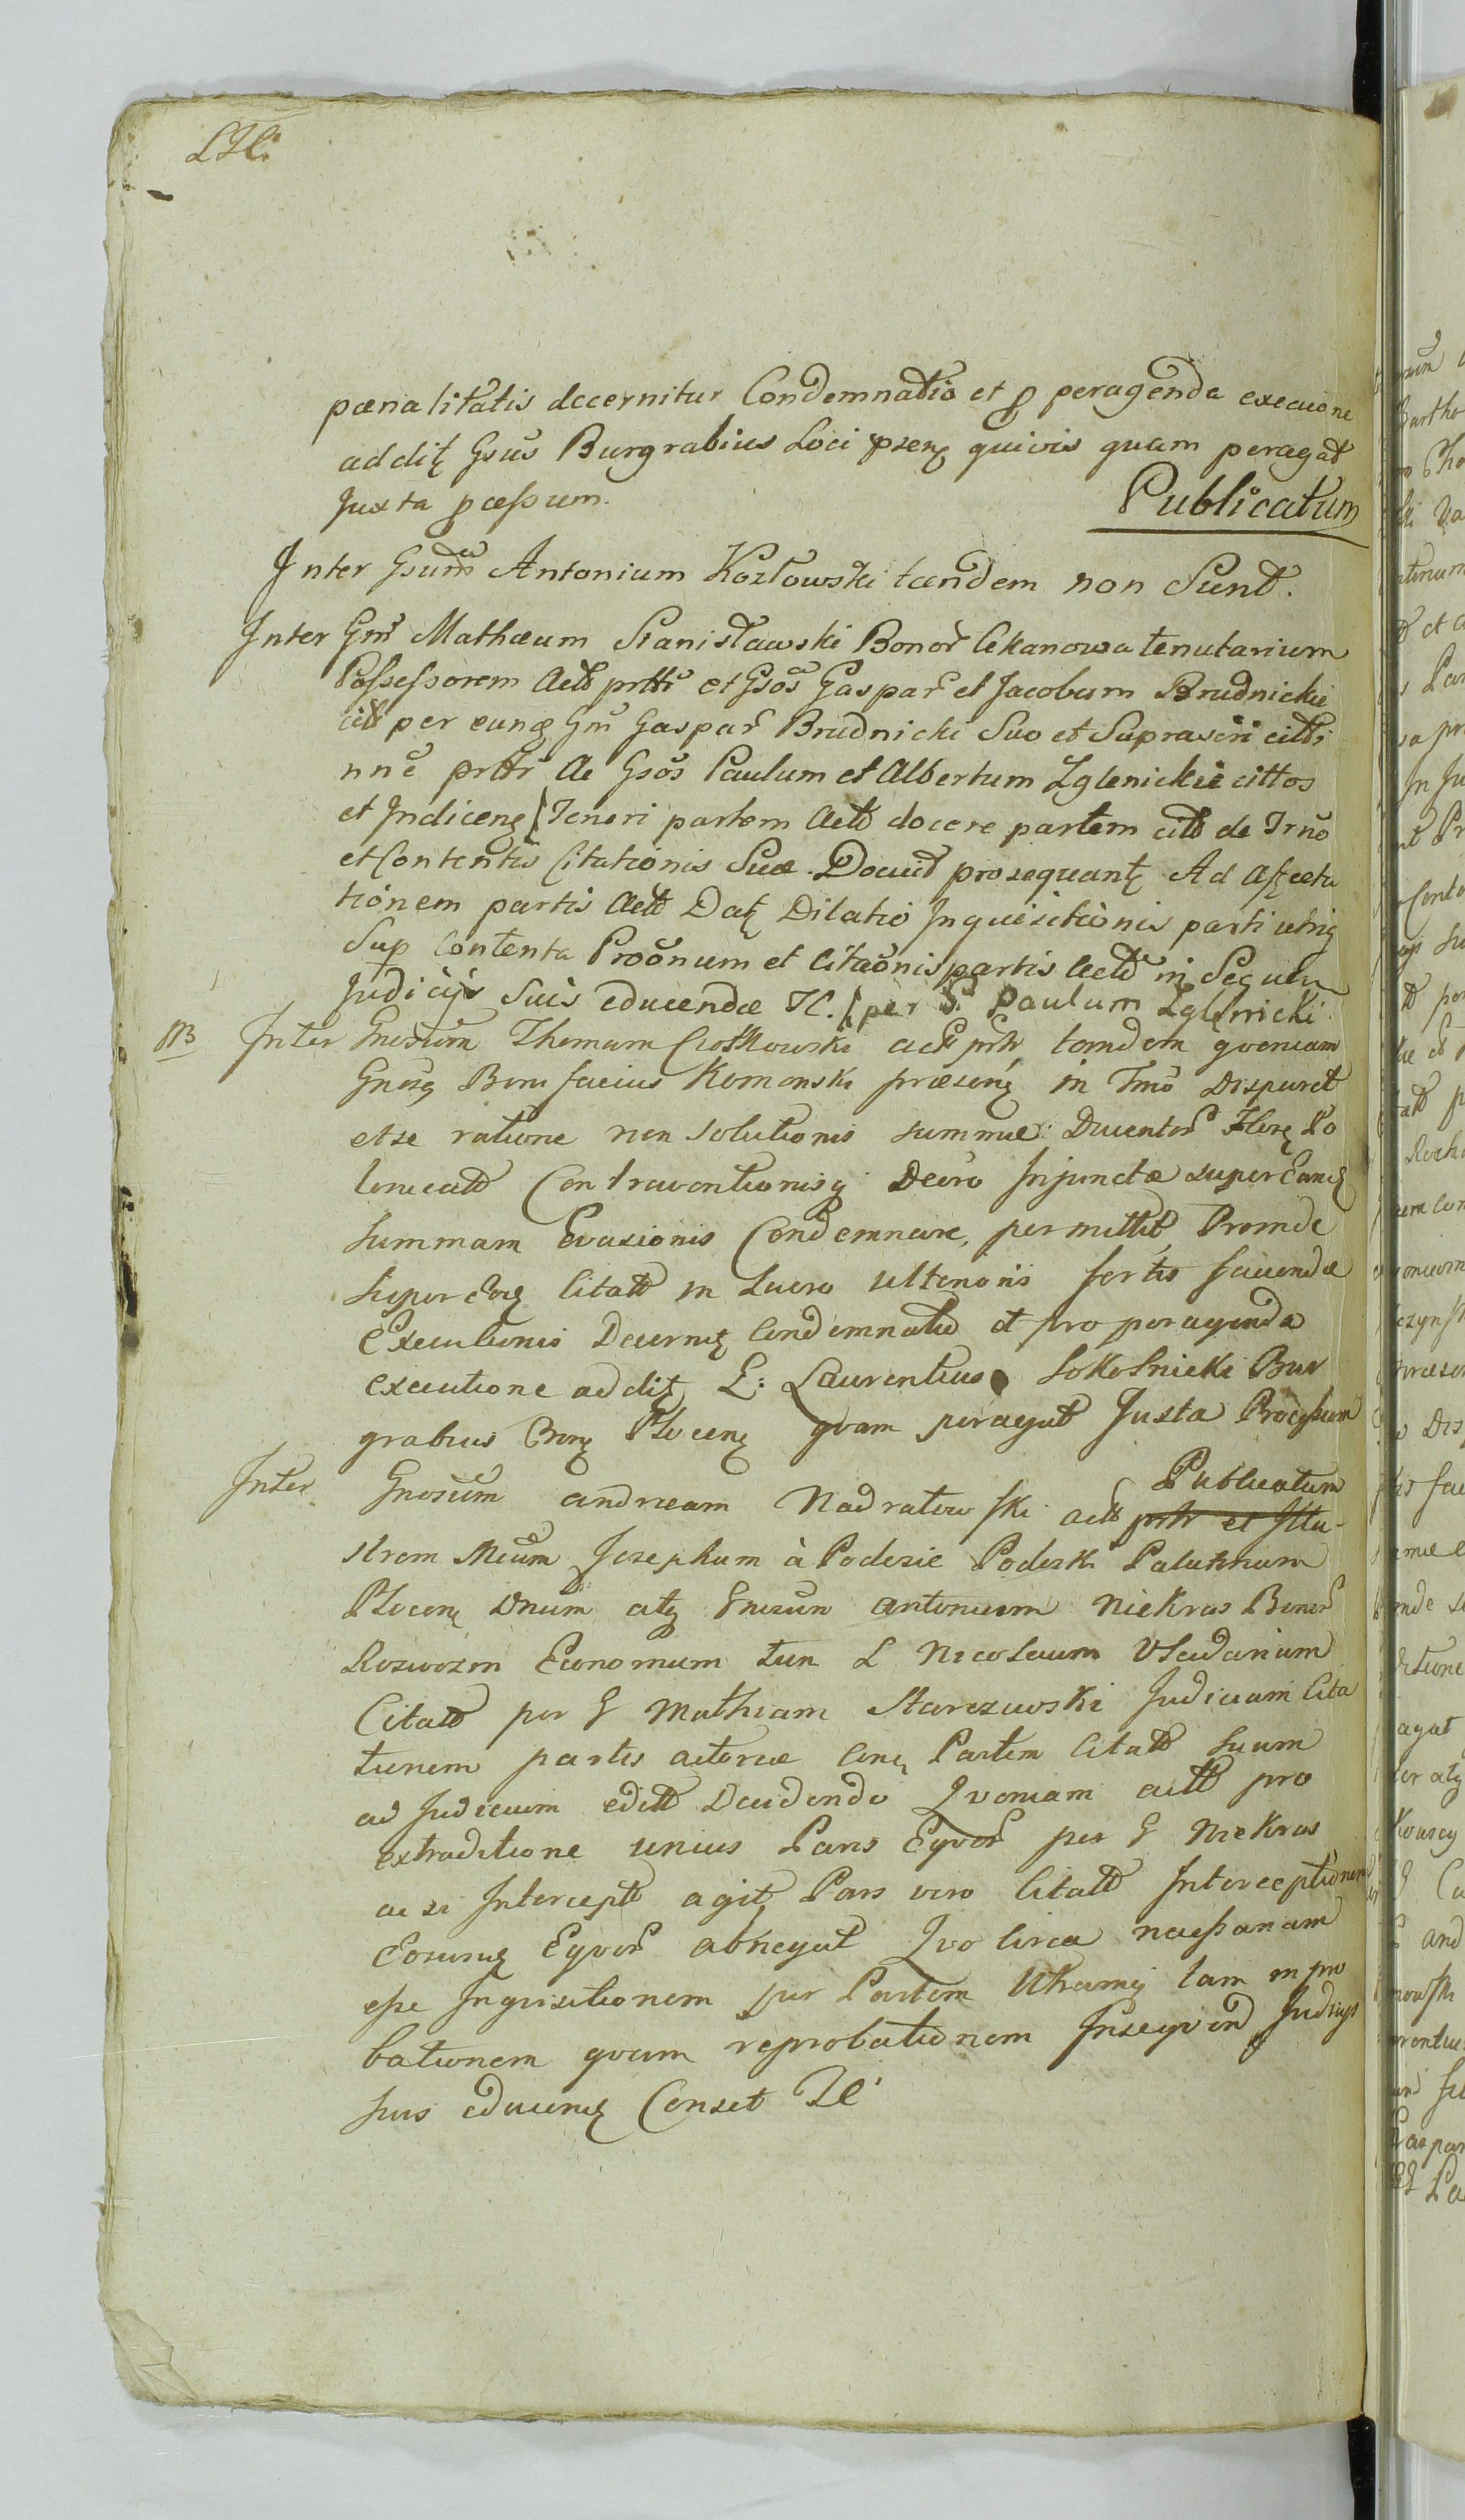 poenalitatis decernitur Condemnatio et p peragenda execuione
addit Gsus Burgrabius Loci psen quivis quam peragat
Juxta pcessum.
Publicatum
Inter Gsum Antonium Kozłowski tandem non Sunt.
Inter Gm Mathæum Stanisławski Bonor Cekanowa tenutarium
Possessorem Act prttr et Gsos Gaspar et Jacobum Brudnickie
citt per eunq Gm Gaspar Brudnicki Suo et Suprascri citti
nne prttr Ac Gsos Paulum et Albertum Zglenickie cittos
et Indicenq Teneri partem Actt docere partem citt de Trno
et Contentis Citationis Suæ. Docuit prosequant Ad affecta
tionem partis Actt Dat Dilatio Inquisitionis parti utriq
Sup Contenta Proonum et Citaonis partis Actt in Sequen
Judicijs Suis educendæ Tc. per G. Paulum Zglenicki
NB Inter Gnosum Thomam Ciołkowski actt prtr tandem qvoniam
Gnosq Bonifacius Komonski præsens in Tmo Disparet
et se ratione non solutionis summæ Ducentor Flore Po
lonicatt Contraventionisq Decro Injunctæ super Eand
Summam Evasionis Condemnare, permittit, Proinde
super Eoq Citatt in Lucro Ulterioris fortis faciendæ
Executionis Decernit Condemnatio et pro peragenda
executione addit G: Laurentius Sokolnicki Bur
grabius Gren Plocen qvam peragat Juxta Processum
Publicatum
Inter Gnosum Andream Nadratowski actt prtr et Illu-
strem Mcum Josephum à Podezie Podoski Palatinum
Plocen Dnum atq Gnosum Antonium Niekras Bonor
Rozwozin Economum tun L Nicolaum Vladarium
Citatt per G Mathiam Starczewski Judicium Cita
tionem partis actoreæ Con Partem Citatt Suam
ad Judicium editt Decidendo Qvoniam actt pro
extraditione unius Paris Eqvor per G Niekras
ac si Intercept agit, Pars vero Citatt Interceptionem
Eorunq Eqvor abnegat Qvo Circa necessariam
esse Inquisitionem per Partem Utramq tam in pro
bationem qvam reprobationem Insequend Judicys
suis educend Censet Tc